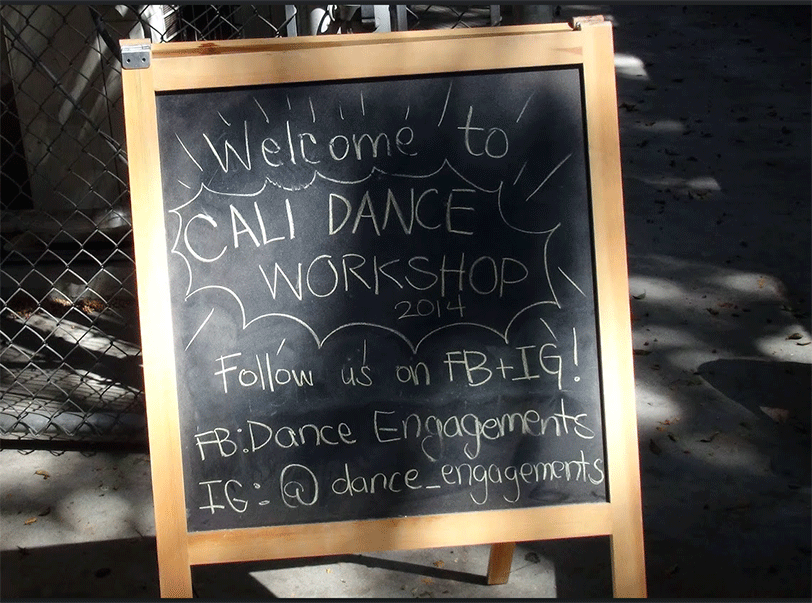 Welcome to
CALI DANCE
WORKSHOP
2014
Follow us on FB+IG!
FB:Dance Engagements
IG:@dance_engagements